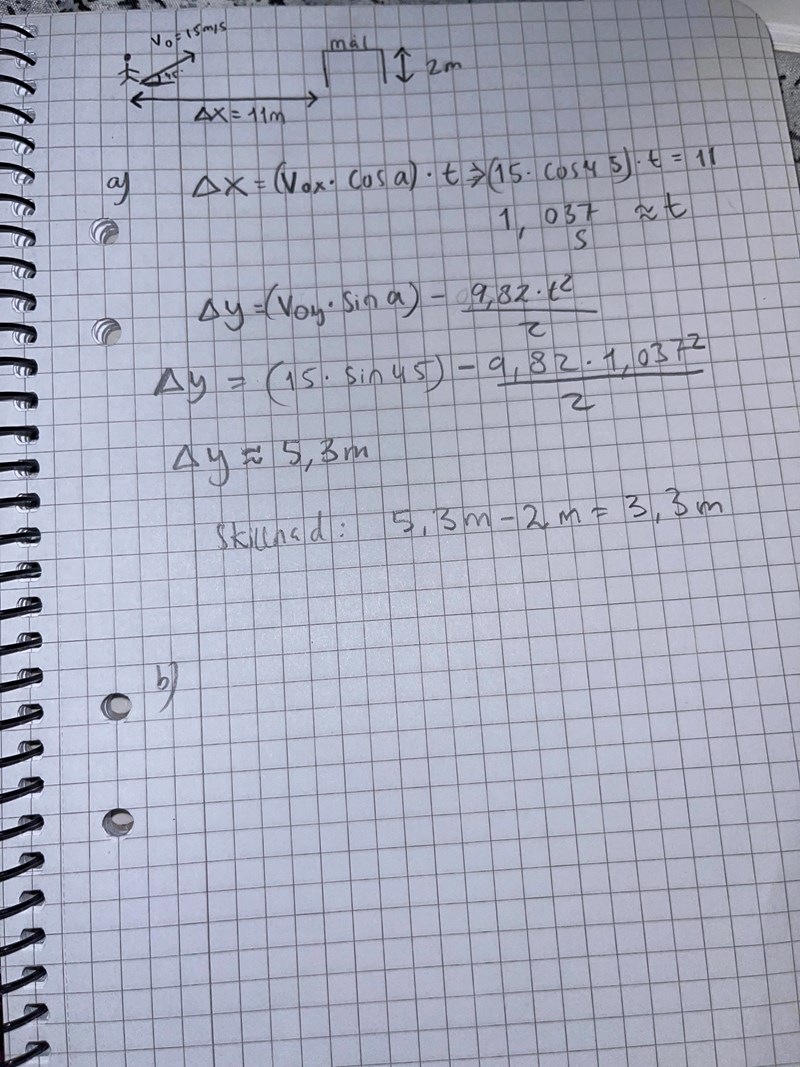 V₀=15m/s
45°
mål
2m
Δx = 11m
a) Δx = (V₀ₓ · cos a) · t ⇒ (15 · cos45) · t = 11
1,037 s ≈ t
Δy = (V₀y · sin a) - 9,82 · t² / 2
Δy = (15 · sin45) - 9,82 · 1,037² / 2
Δy ≈ 5,3m
Skillnad: 5,3m - 2m = 3,3m
b)